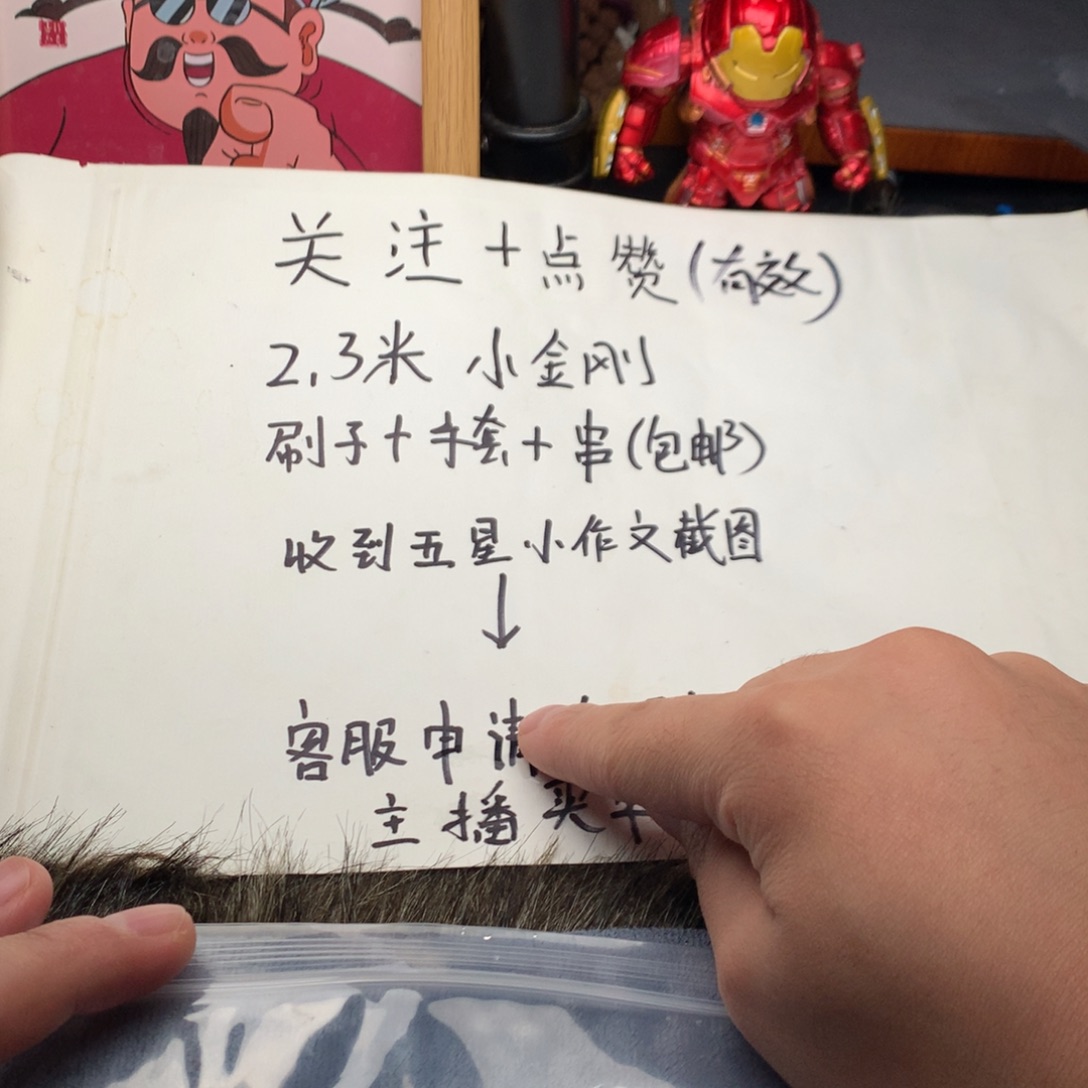 关注+点赞(有效)
2.3米 小金刚
刷子+手套+串(包邮)
收到五星小作文截图
↓
客服申请
主播买单